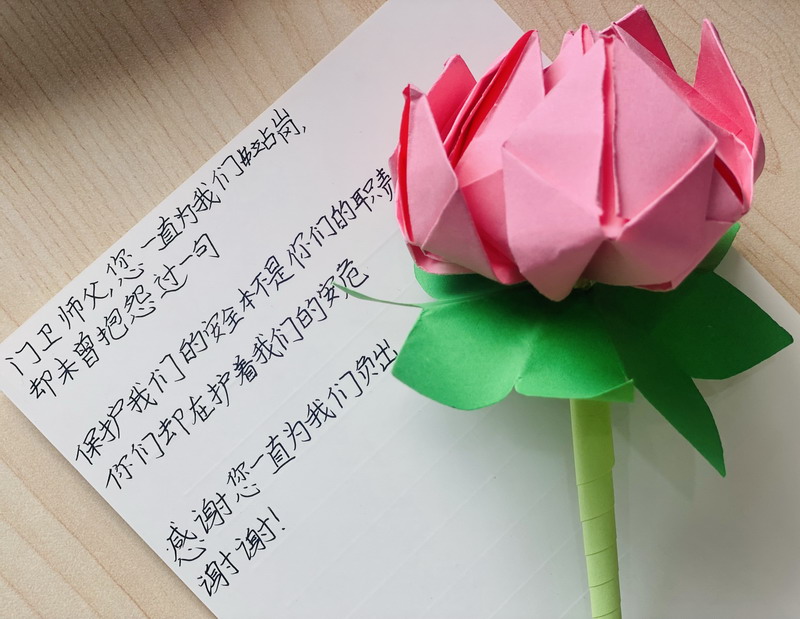 门卫师父,您一直为我们站岗,
却未曾抱怨过一句
保护我们的安全本不是你们的职责
你们却在护着我们的安危
感谢您一直为我们负出
谢谢!